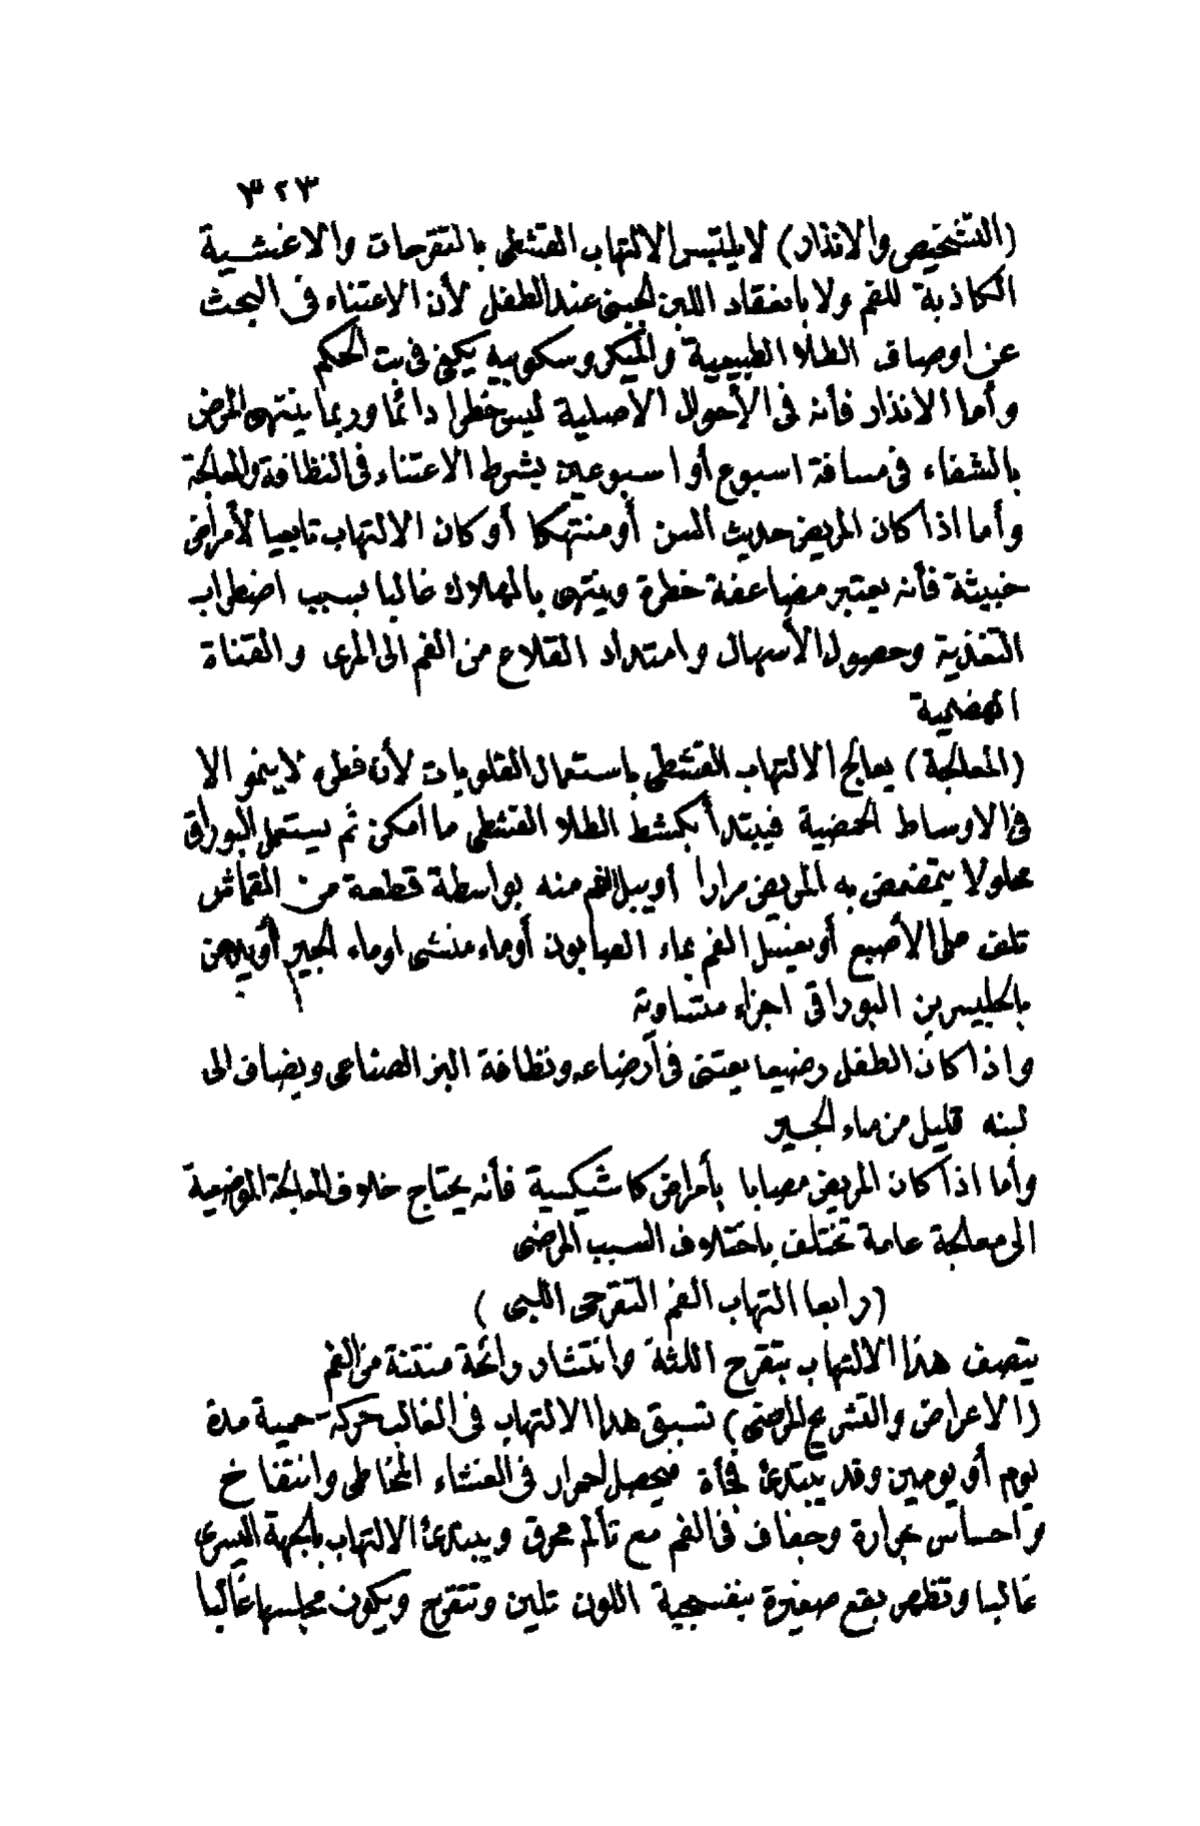 ٣٢٣
(التشخيص والانذار) لا يلتبس الالتهاب القشطى بالتقرحات والاغشية
الكاذبة للفم ولا بانعقاد اللبن الجبنى عند الطفل لأن الاعتناء فى البحث
عن اوصاف الطلا الطبيعية والميكروسكوبيه يكفى فى بت الحكم
وأما الانذار فأنه فى الأحوال الأصلية ليس خطرا دائما وربما ينتهى المرض
بالشفاء فى مسافة اسبوع أو اسبوعين بشرط الاعتناء فى النظافة والمعالجة
وأما اذا كان المريض حديث السن أو منتهكا أو كان الالتهاب تابعيا لأمراض
خبيثة فأنه يعتبر مضاعفة خطرة وينتهى بالهلاك غالبا بسبب اضطراب
التغذية وحصول الأسهال وامتداد القلاع من الفم الى المرى والقناة
الهضمية
(المعالجة) يعالج الالتهاب القشطى باستعمال القلويات لأن فطره لا ينمو الا
فى الاوساط الحمضية فيبتدأ بكشط الطلا القشطى ما امكن ثم يستعمل البوراق
محلولا يتمضمض به المريض مرارا أو يبل الفم منه بواسطة قطعة من القماش
تلف على الأصبع أو يغسل الفم بماء الصابون أو ماء منشى او ماء الجير أو يدهن
بالجليسرين البوراقى اجزاء متساوية
واذا كان الطفل رضيعا يعتنى فى أرضاعه ونظافة البز الصناعى ويضاف الى
لبنه قليل من ماء الجير
وأما اذا كان المريض مصابا بأمراض كاشيكسية فأنه يحتاج خلاف المعالجة الموضعية
الى معالجة عامة تختلف باختلاف السبب المرضى
(رابعا التهاب الفم التقرحى اللثى)
يتصف هذا الالتهاب بتقرح اللثة وانتشار رائحة منتنة من الفم
(الاعراض والتشريح المرضى) تسبق هذا الالتهاب فى الغالب حركة حمية مدة
يوم أو يومين وقد يبتدئ فجأة فيحصل احمرار فى الغشاء المخاطى وانتفاخ
واحساس بحرارة وجفاف فى الفم مع تألم محرق ويبتدئ الالتهاب بالجهة اليسرى
غالبا وتظهر بقع صغيرة بنفسجية اللون تلين وتتقرح ويكون مجلسها غالبا